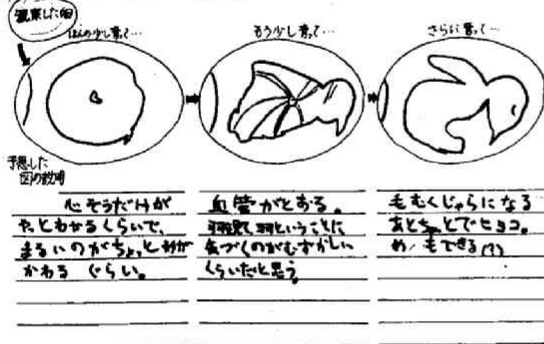 観察した卵
ほんの少し育って…
もう少し育って…
さらに育って…
予想した
図の説明
心ぞうだけが
やっとわかるくらいで、
まるいのがちょっと形が
かわるぐらい。
血管がとおる。
羽ということに
気づくのがむずかしい
くらいだと思う。
毛むくじゃらになる
あとちょっとでヒヨコ。
めもできる(?)